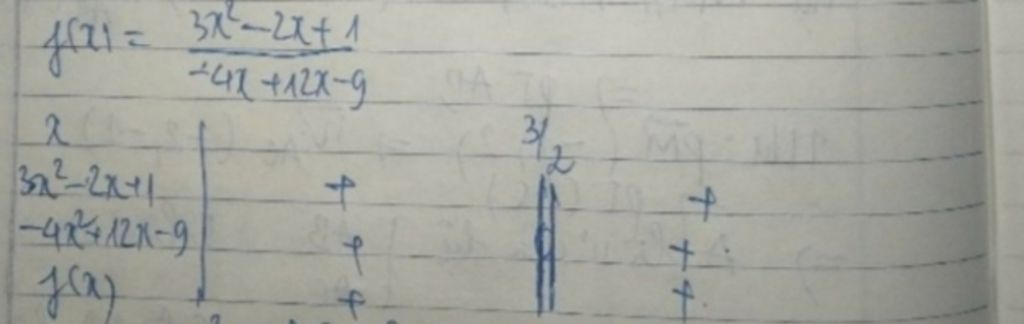 f(x) = 3x² - 2x + 1
-4x + 12x - 9
x 3/2
3x² - 2x + 1 + +
-4x² + 12x - 9 + +
f(x) + +